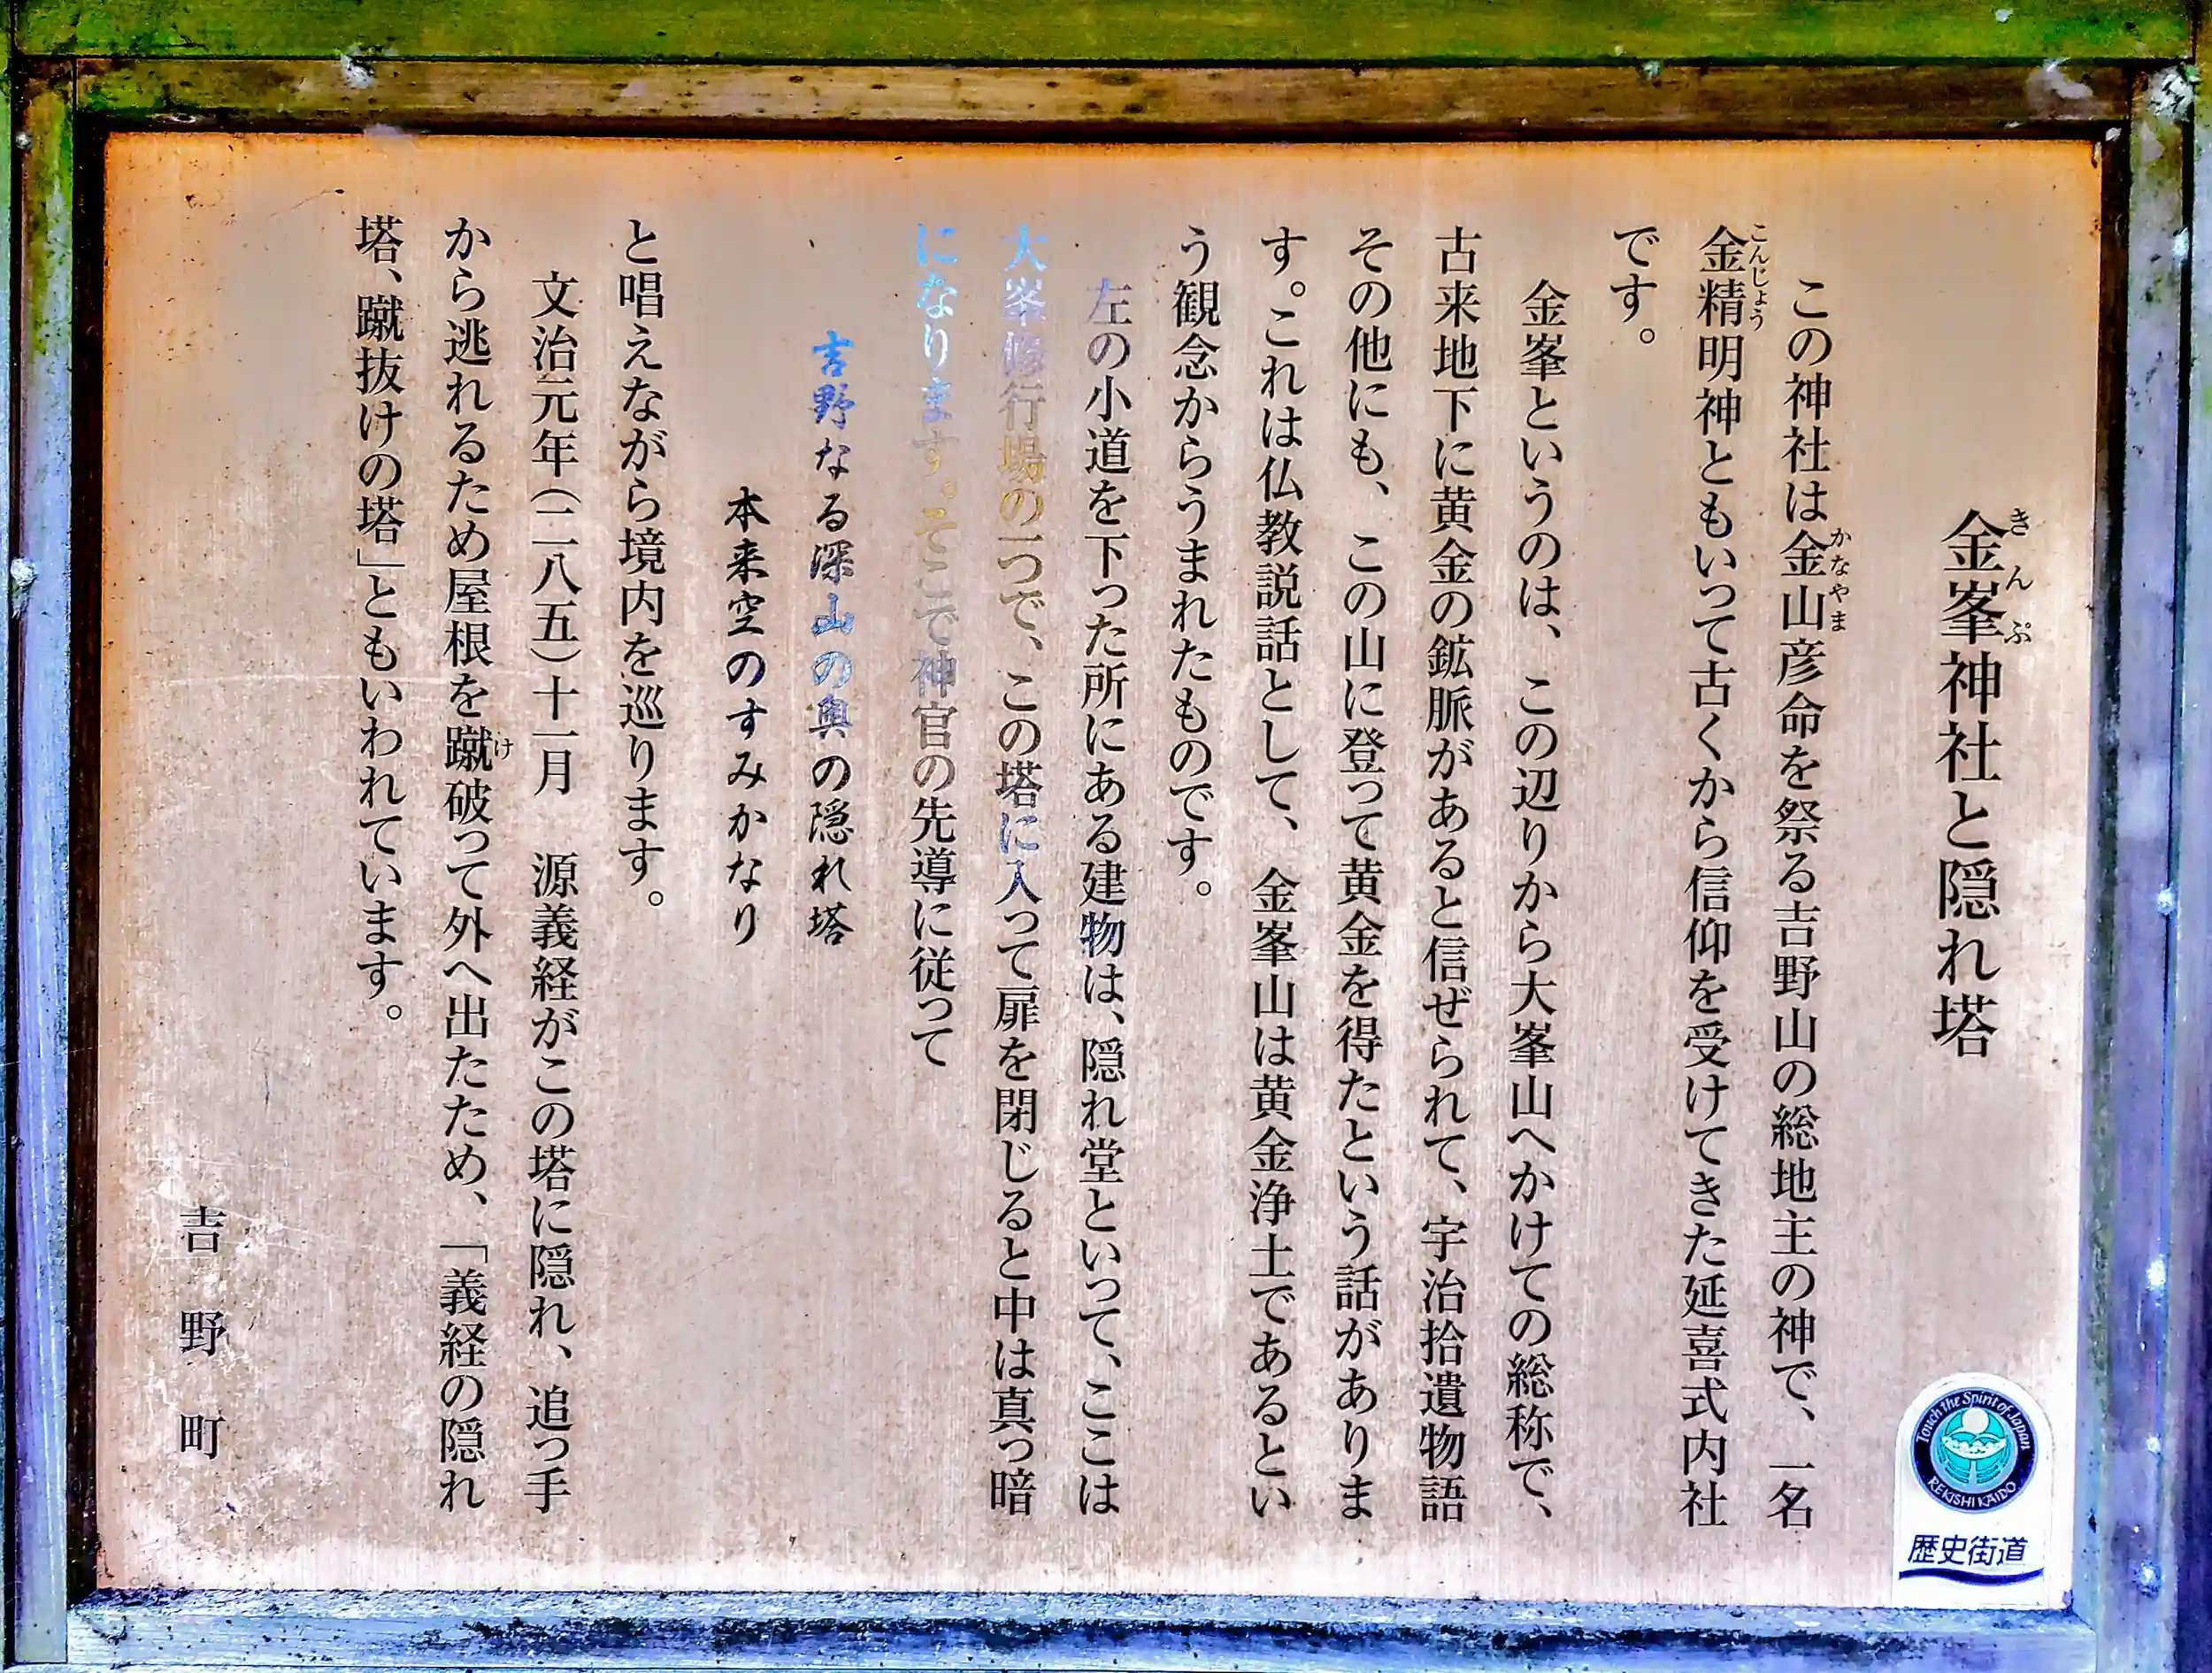 金峯神社と隠れ塔
きんぷ
この神社は金山彦命を祭る吉野山の総地主の神で、一名
かなやま
金精明神ともいって古くから信仰を受けてきた延喜式内社
こんじょう
です。
金峯というのは、この辺りから大峯山へかけての総称で、
古来地下に黄金の鉱脈があると信ぜられて、宇治拾遺物語
その他にも、この山に登って黄金を得たという話がありま
す。これは仏教説話として、金峯山は黄金浄土であるとい
う観念からうまれたものです。
左の小道を下った所にある建物は、隠れ堂といって、ここは
大峯修行場の一つで、この塔に入って扉を閉じると中は真っ暗
になります。そこで神官の先導に従って
吉野なる深山の奥の隠れ塔
本来空のすみかなり
と唱えながら境内を巡ります。
文治元年(一一八五)十一月 源義経がこの塔に隠れ、追っ手
から逃れるため屋根を蹴破って外へ出たため、「義経の隠れ
け
塔、蹴抜けの塔」ともいわれています。
吉野町
Touch the Spirit of Japan
REKISHI KAIDO
歴史街道